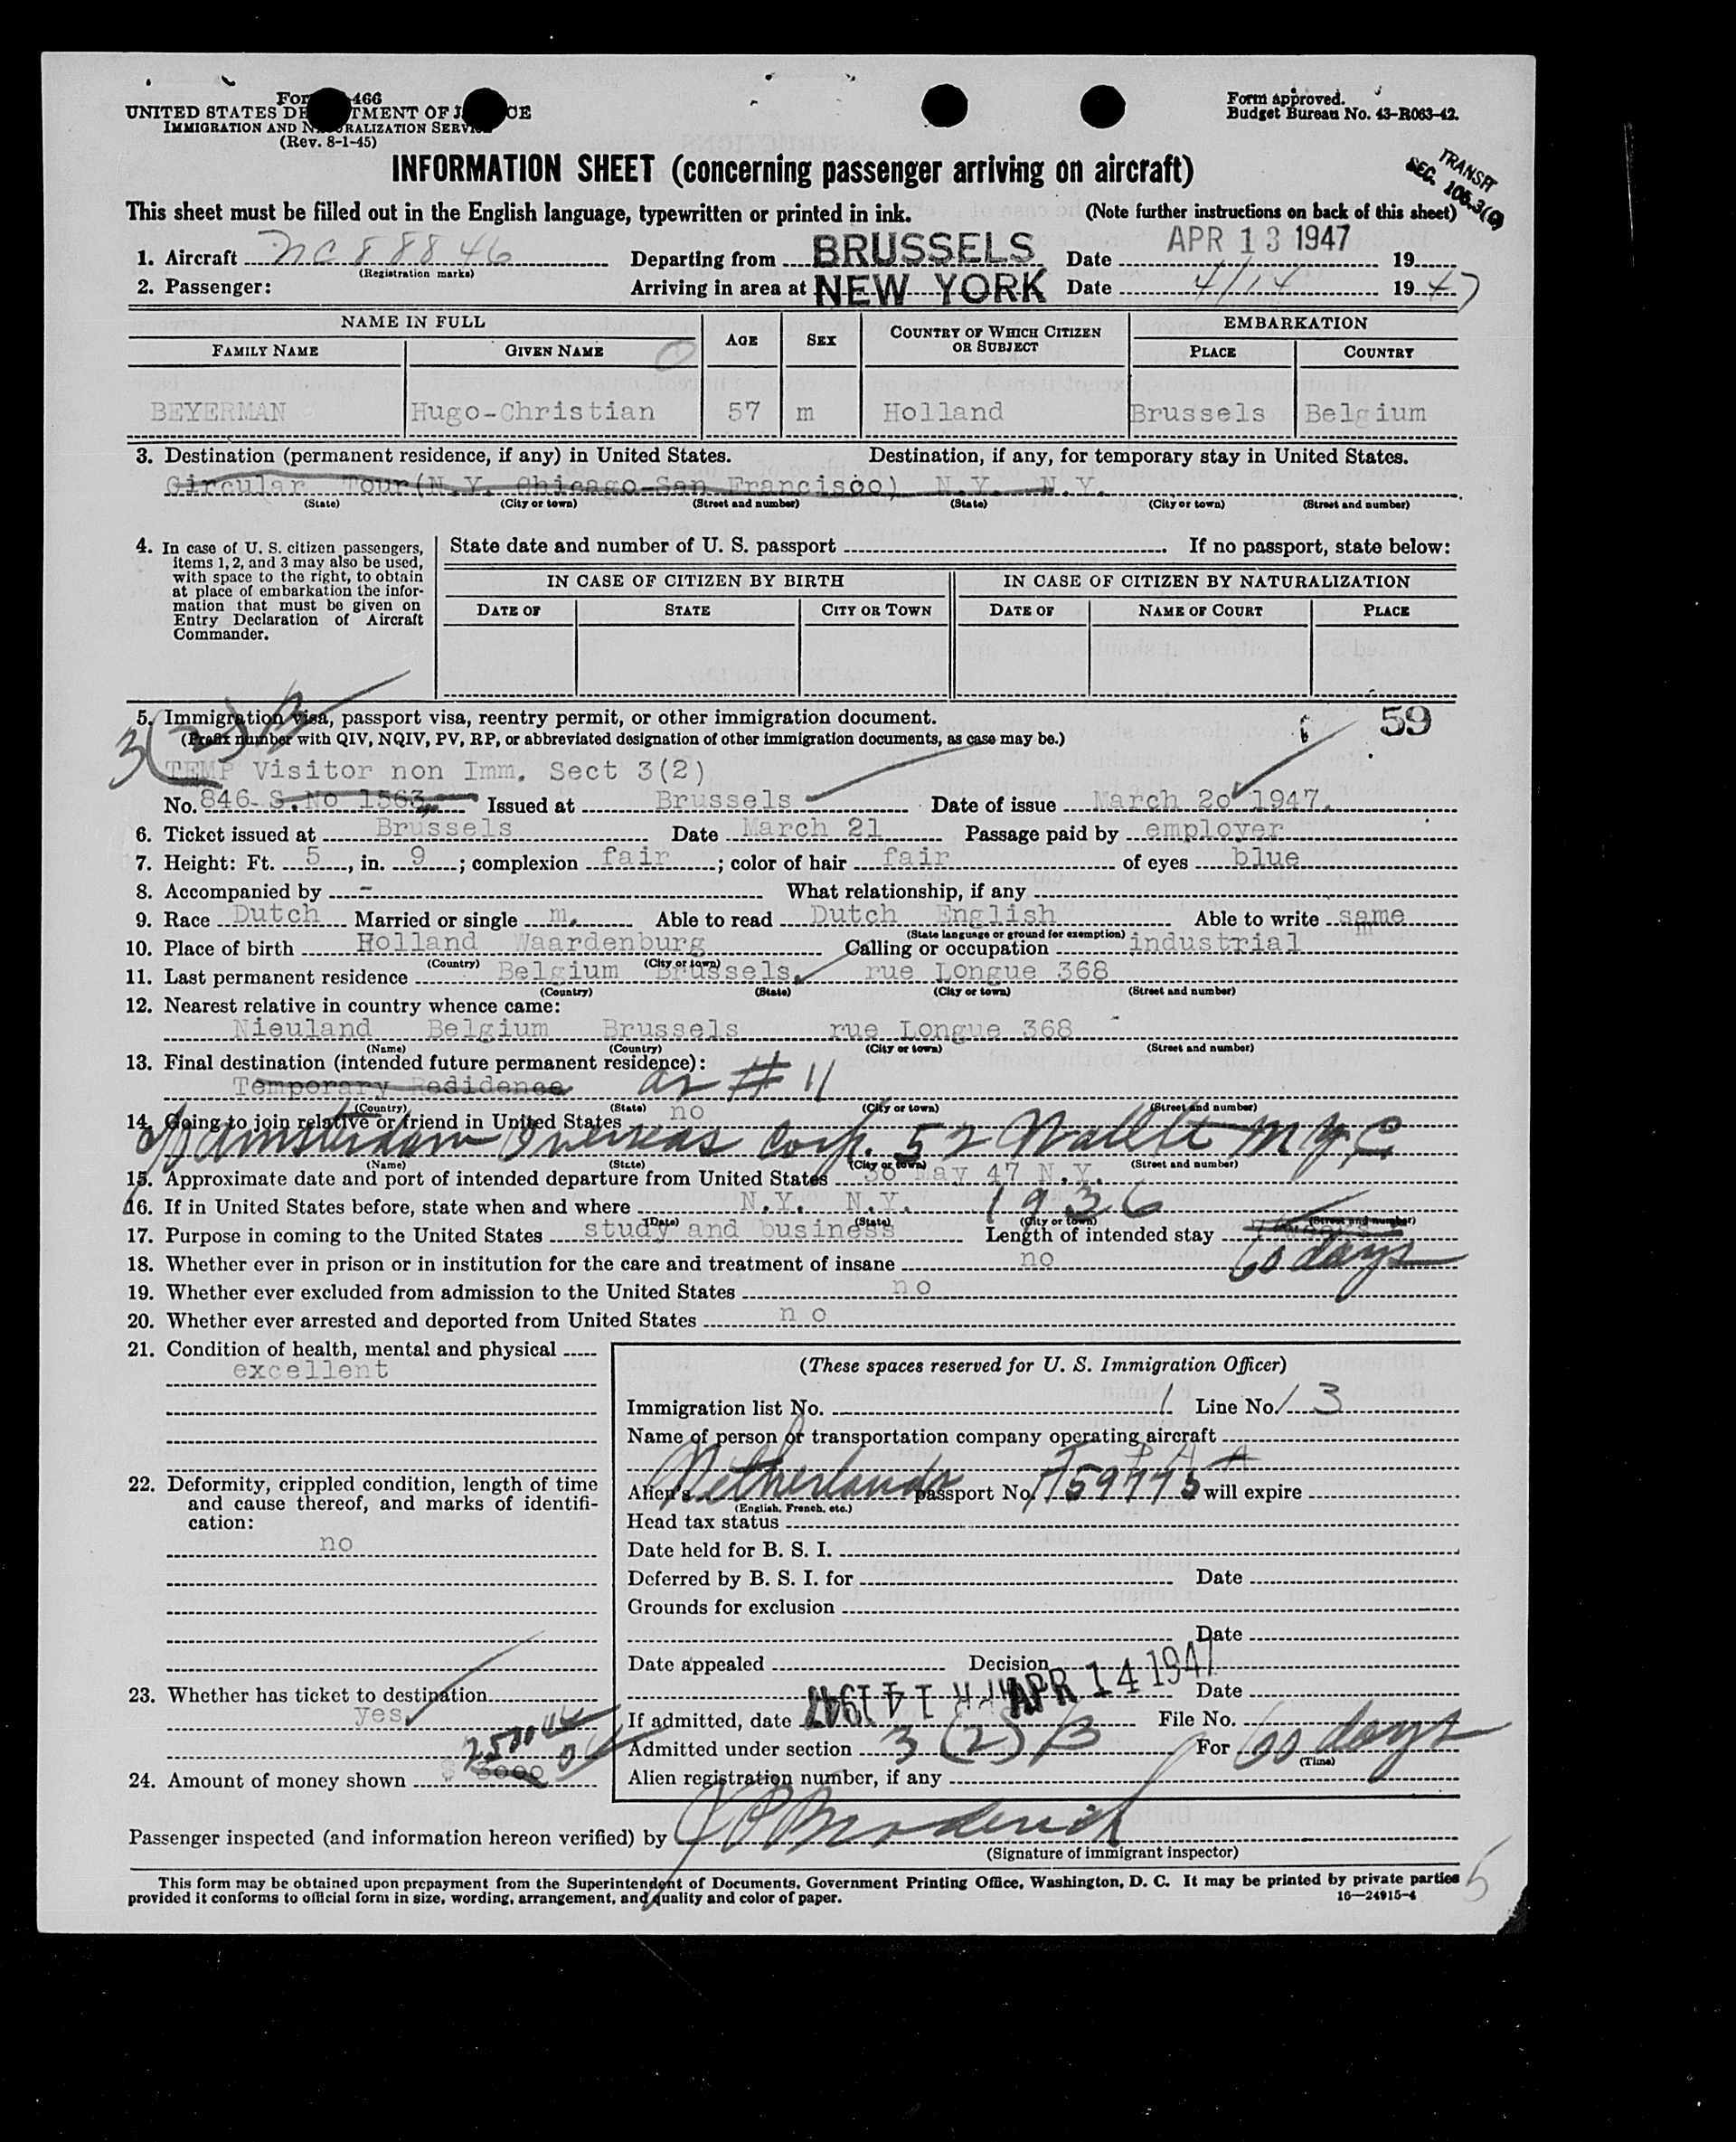 Form 466
UNITED STATES DEPARTMENT OF JUSTICE
IMMIGRATION AND NATURALIZATION SERVICE
(Rev. 8-1-45)
Form approved.
Budget Bureau No. 43-R063-42.
INFORMATION SHEET (concerning passenger arriving on aircraft)
TRANSIT
SEC. 105.3(
This sheet must be filled out in the English language, typewritten or printed in ink. (Note further instructions on back of this sheet)
1. Aircraft NC 88846 Departing from BRUSSELS Date APR 13 1947 19
(Registration marks)
2. Passenger: Arriving in area at NEW YORK Date 4/14 1947
NAME IN FULL AGE SEX COUNTRY OF WHICH CITIZEN OR SUBJECT EMBARKATION
FAMILY NAME GIVEN NAME PLACE COUNTRY
BEYERMAN Hugo-Christian 57 m Holland Brussels Belgium
3. Destination (permanent residence, if any) in United States. Destination, if any, for temporary stay in United States.
Circular Tour(N.Y. Chicago-San Francisco) N.Y. N.Y.
(State) (City or town) (Street and number) (State) (City or town) (Street and number)
4. In case of U. S. citizen passengers, items 1, 2, and 3 may also be used, with space to the right, to obtain at place of embarkation the information that must be given on Entry Declaration of Aircraft Commander.
State date and number of U. S. passport If no passport, state below:
IN CASE OF CITIZEN BY BIRTH IN CASE OF CITIZEN BY NATURALIZATION
DATE OF STATE CITY OR TOWN DATE OF NAME OF COURT PLACE
5. Immigration visa, passport visa, reentry permit, or other immigration document. 59
(Prefix number with QIV, NQIV, PV, RP, or abbreviated designation of other immigration documents, as case may be.)
3(2)B
TEMP Visitor non Imm. Sect 3(2)
No. 846- S.No 1563 Issued at Brussels Date of issue March 20 1947.
6. Ticket issued at Brussels Date March 21 Passage paid by employer
7. Height: Ft. 5, in. 9; complexion fair; color of hair fair of eyes blue
8. Accompanied by - What relationship, if any
9. Race Dutch Married or single m. Able to read Dutch English Able to write same
(State language or ground for exemption)
10. Place of birth Holland Waardenburg Calling or occupation industrial
(Country) (City or town)
11. Last permanent residence Belgium Brussels, rue Longue 368
(Country) (State) (City or town) (Street and number)
12. Nearest relative in country whence came:
Nieuland Belgium Brussels rue Longue 368
(Name) (Country) (City or town) (Street and number)
13. Final destination (intended future permanent residence):
Temporary Redidence as # 11
(Country) (State) (City or town) (Street and number)
14. Going to join relative or friend in United States no
Amsterdam Overseas Corp. 52 Wall St N Y C
(Name) (State) (City or town) (Street and number)
15. Approximate date and port of intended departure from United States 30 May 47 N.Y.
16. If in United States before, state when and where N.Y. N.Y. 1936
(Date) (State) (City or town) (Street and number)
17. Purpose in coming to the United States study and business Length of intended stay 7 weeks
60 days
18. Whether ever in prison or in institution for the care and treatment of insane no
19. Whether ever excluded from admission to the United States no
20. Whether ever arrested and deported from United States no
21. Condition of health, mental and physical
excellent
22. Deformity, crippled condition, length of time and cause thereof, and marks of identification:
no
23. Whether has ticket to destination
yes
2500
24. Amount of money shown $ 3000
(These spaces reserved for U. S. Immigration Officer)
Immigration list No. 1 Line No. 13
Name of person or transportation company operating aircraft
Alien's Netherlands passport No. 759775 will expire
(English, French, etc.)
Head tax status
Date held for B. S. I.
Deferred by B. S. I. for Date
Grounds for exclusion
Date
Date appealed Decision
Date
If admitted, date APR 14 1947 File No.
Admitted under section 3(2)B For 60 days
(Time)
Alien registration number, if any
Passenger inspected (and information hereon verified) by
(Signature of immigrant inspector)
This form may be obtained upon prepayment from the Superintendent of Documents, Government Printing Office, Washington, D. C. It may be printed by private parties
provided it conforms to official form in size, wording, arrangement, and quality and color of paper. 16—24915-4
5